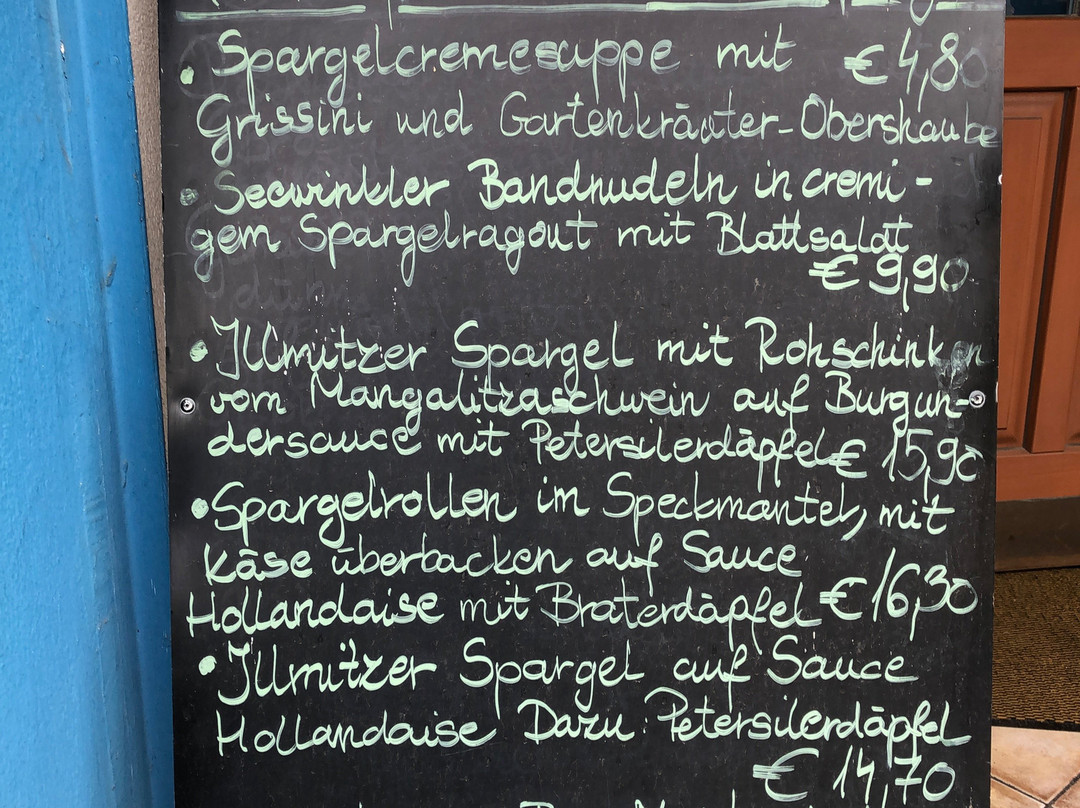 • Spargelcremesuppe mit € 4,80
Grissini und Gartenkräuter-Obershaube
• Seewinkler Bandnudeln in cremi-
gem Spargelragout mit Blattsalat
€ 9,90
• Illmitzer Spargel mit Rohschinken
vom Mangalitzaschwein auf Burgun-
dersauce mit Petersilerdäpfel € 15,90
• Spargelrollen im Speckmantel, mit
Käse überbacken auf Sauce
Hollandaise mit Braterdäpfel € 16,30
• Illmitzer Spargel auf Sauce
Hollandaise Dazu: Petersilerdäpfel
€ 14,70